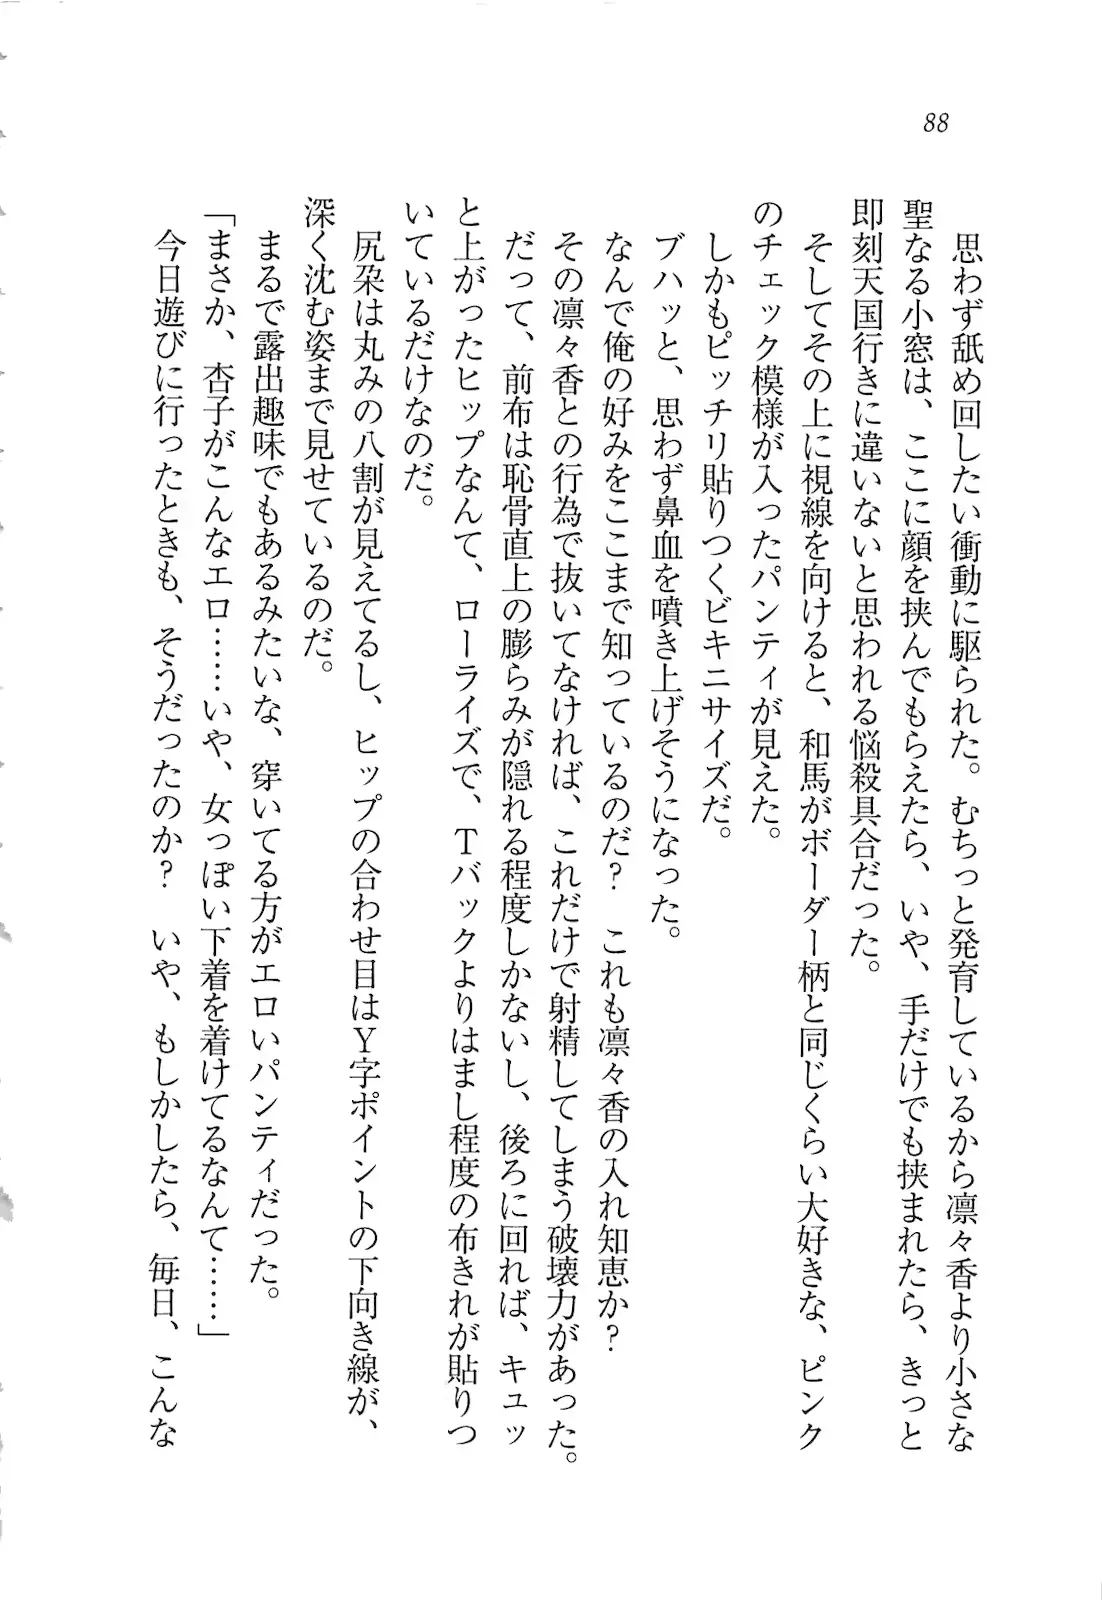 88
思わず舐め回したい衝動に駆られた。むちっと発育しているから凛々香より小さな
聖なる小窓は、ここに顔を挟んでもらえたら、いや、手だけでも挟まれたら、きっと
即刻天国行きに違いないと思われる悩殺具合だった。
そしてその上に視線を向けると、和馬がボーダー柄と同じくらい大好きな、ピンク
のチェック模様が入ったパンティが見えた。
しかもピッチリ貼りつくビキニサイズだ。
ブハッと、思わず鼻血を噴き上げそうになった。
なんで俺の好みをここまで知っているのだ？　これも凛々香の入れ知恵か？
その凛々香との行為で抜いてなければ、これだけで射精してしまう破壊力があった。
だって、前布は恥骨直上の膨らみが隠れる程度しかないし、後ろに回れば、キュッ
と上がったヒップなんて、ローライズで、Ｔバックよりはまし程度の布きれが貼りつ
いているだけなのだ。
尻朶は丸みの八割が見えてるし、ヒップの合わせ目はＹ字ポイントの下向き線が、
深く沈む姿まで見せているのだ。
まるで露出趣味でもあるみたいな、穿いてる方がエロいパンティだった。
「まさか、杏子がこんなエロ……いや、女っぽい下着を着けてるなんて……」
今日遊びに行ったときも、そうだったのか？　いや、もしかしたら、毎日、こんな